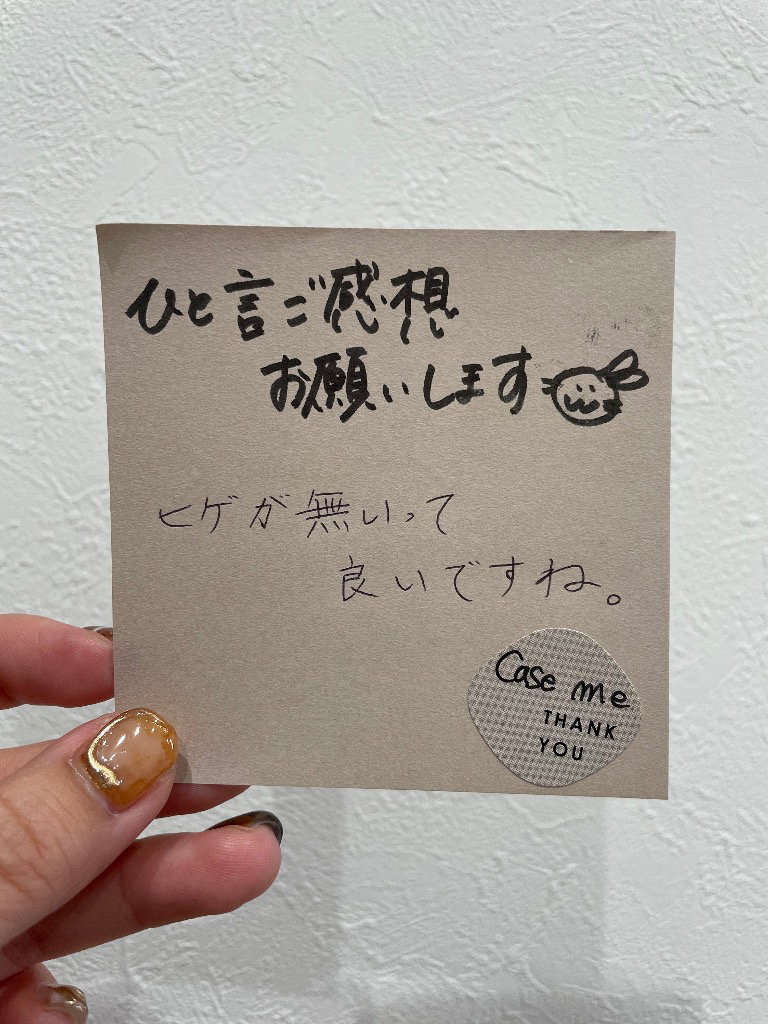 ひと言ご感想
お願いします
ヒゲが無いって
良いですね。
Case me
THANK
YOU